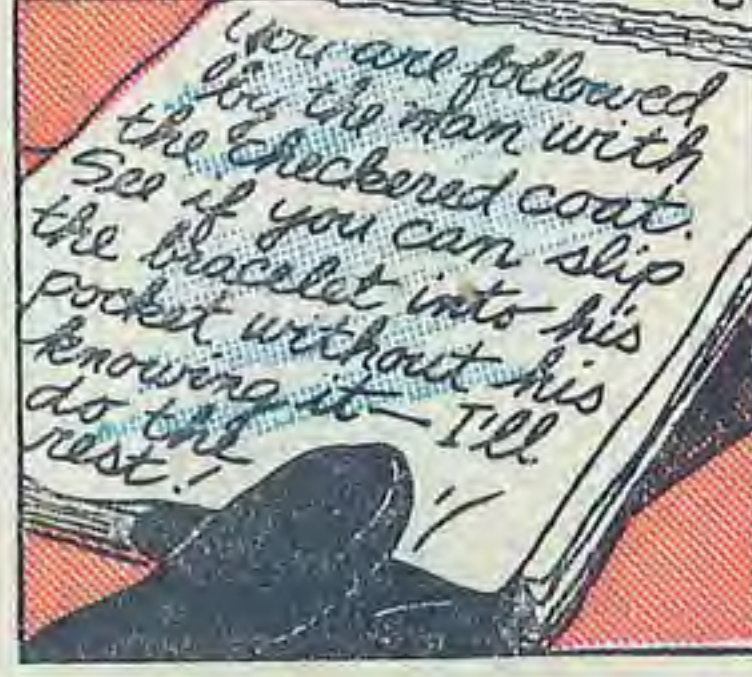 You are followed
by the man with
the checkered coat.
See if you can slip
the bracelet into his
pocket without his
knowing it— I'll
do the
rest!